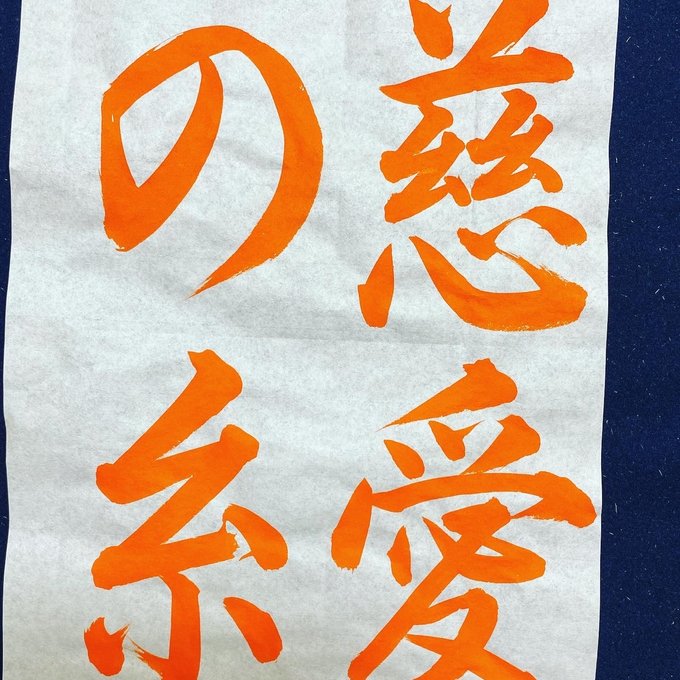 慈愛
の糸